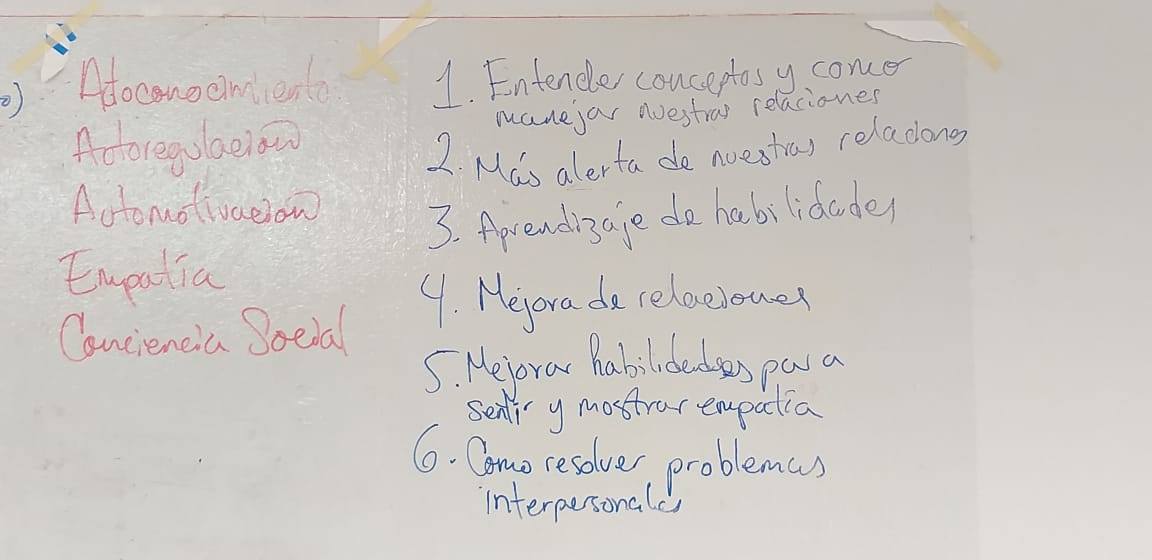 Autoconocimiento
Autoregulación
Automotivación
Empatía
Conciencia Social
1. Entender conceptos y como
manejar nuestras relaciones
2. Más alerta de nuestras relaciones
3. Aprendizaje de habilidades
4. Mejora de relaciones
5. Mejorar habilidades para
sentir y mostrar empatía
6. Como resolver problemas
interpersonales